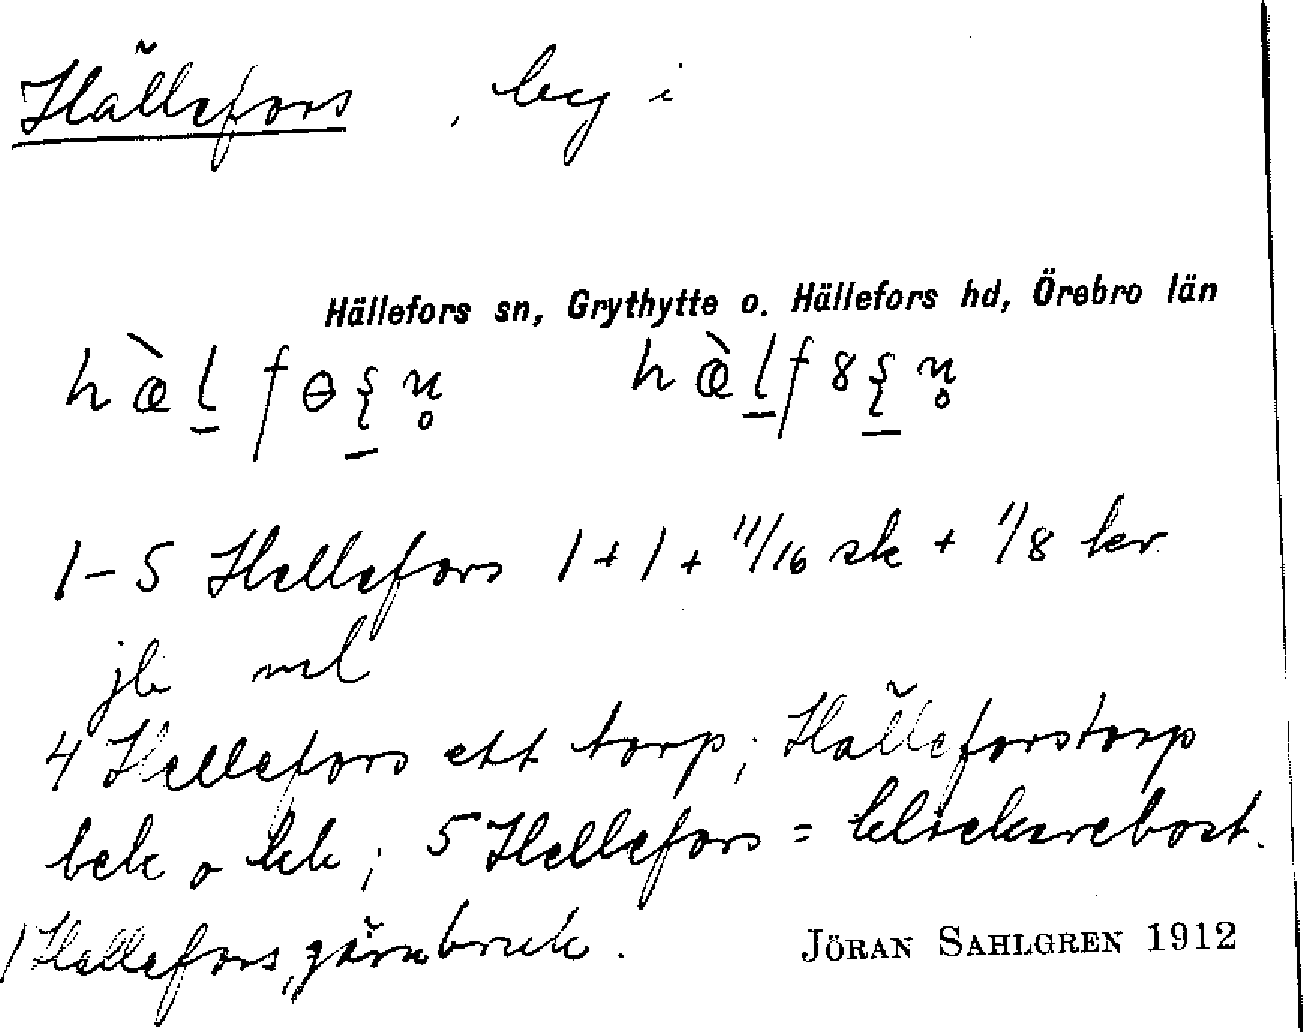 Hällefors, by i
Hällefors sn, Grythytte o. Hällefors hd, Örebro län
hæ̀l̠fɵʂn̥ hæ̀l̠f8ʂn̥
1-5 Hellefors 1+1+ 11/16 sk + 1/8 kr
jb ml
4 Hellefors ett torp; Hälleforstorp
bek o kk; 5 Hellefors = klockarebost.
1 Hellefors, järnbruk.
JÖRAN SAHLGREN 1912